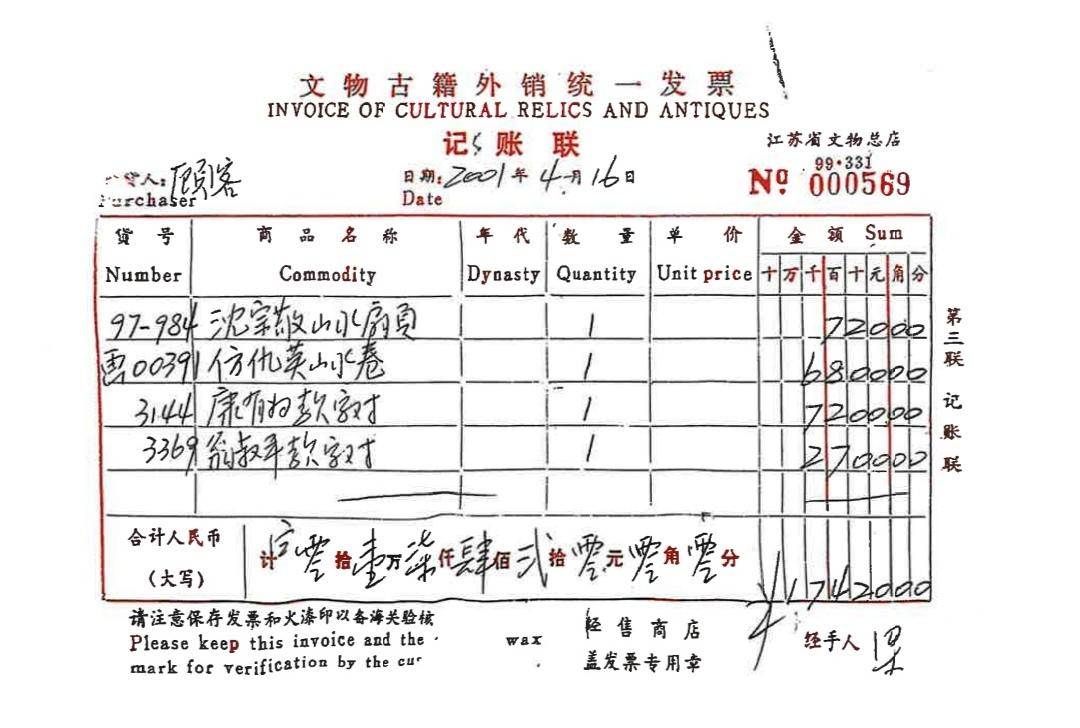 文物古籍外销统一发票
INVOICE OF CULTURAL RELICS AND ANTIQUES
记账联
江苏省文物总店
99·331
货人: 顾客
日期: 2001年 4月 16日
Nº 000569
Purchaser
Date
货号 商品名称 年代 数量 单价 金额 Sum
Number Commodity Dynasty Quantity Unit price 十 万 千 百 十 元 角 分
97-984 沈宗敬山水扇页 1 72000
00391 仿仇英山水卷 1 680000
3144 康有为款字对 1 720000
3369 翁叔平款字对 1 270000
合计人民币
(大写)
计 零拾壹万柒仟肆佰贰拾零元零角零分 ¥1742000
第三联 记账联
请注意保存发票和火漆印以备海关验核
Please keep this invoice and the wax
mark for verification by the
经售商店
盖发票专用章
经手人 梁